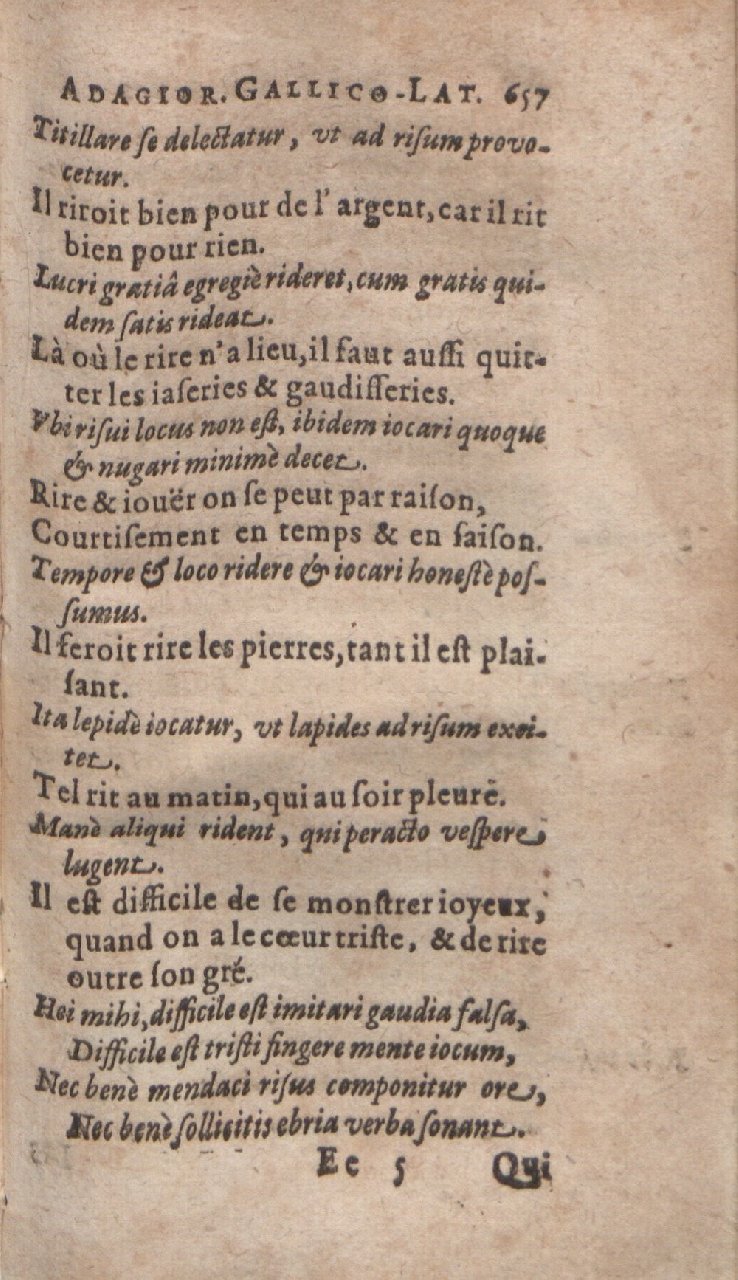 ADAGIOR. GALLICO-LAT. 657
Titillare ſe delectatur, vt ad riſum provo-
cetur.
Il riroit bien pour de l' argent, car il rit
bien pour rien.
Lucri gratiâ egregiè rideret, cum gratis qui-
dem ſatis rideat.
Là où le rire n'a lieu, il faut auſſi quit-
ter les iaſeries & gaudiſſeries.
Vbi riſui locus non eſt, ibidem iocari quoque
& nugari minimè decet.
Rire & iouër on ſe peut par raiſon,
Courtiſement en temps & en ſaiſon.
Tempore & loco ridere & iocari honeſtè poſ-
ſumus.
Il feroit rire les pierres, tant il eſt plai-
ſant.
Ita lepidè iocatur, vt lapides ad riſum exci-
tet.
Tel rit au matin, qui au ſoir pleure.
Manè aliqui rident, qui peracto veſpere
lugent.
Il eſt difficile de ſe monſtrer ioyeux,
quand on a le cœur triſte, & de rire
outre ſon gré.
Hei mihi, difficile eſt imitari gaudia falſa,
Difficile eſt triſti fingere mente iocum,
Nec benè mendaci riſus componitur ore,
Nec benè ſollicitis ebria verba ſonant.
Ee 5 Qui